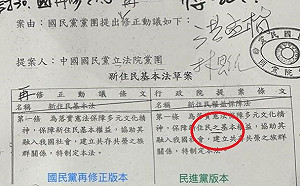 案由：國民黨黨團提出修正動議如下：
提案人：中國國民黨立法院黨團
新住民基本法草案
修正動議條文
行政院提案條文
名稱 新住民基本法
名稱 新住民權益保障法
第一條 為落實憲法保障多元文化精
神，保障新住民基本權益，協助其
融入我國社會，建立共存共榮之族
群關係，特制定本法。
第一條 為落實憲法保障多元文化精
神，保障新住民之基本權益，協助
其融入我國社會，建立共存共榮之族
群關係，特制定本法。
國民黨再修正版本
民進黨版本